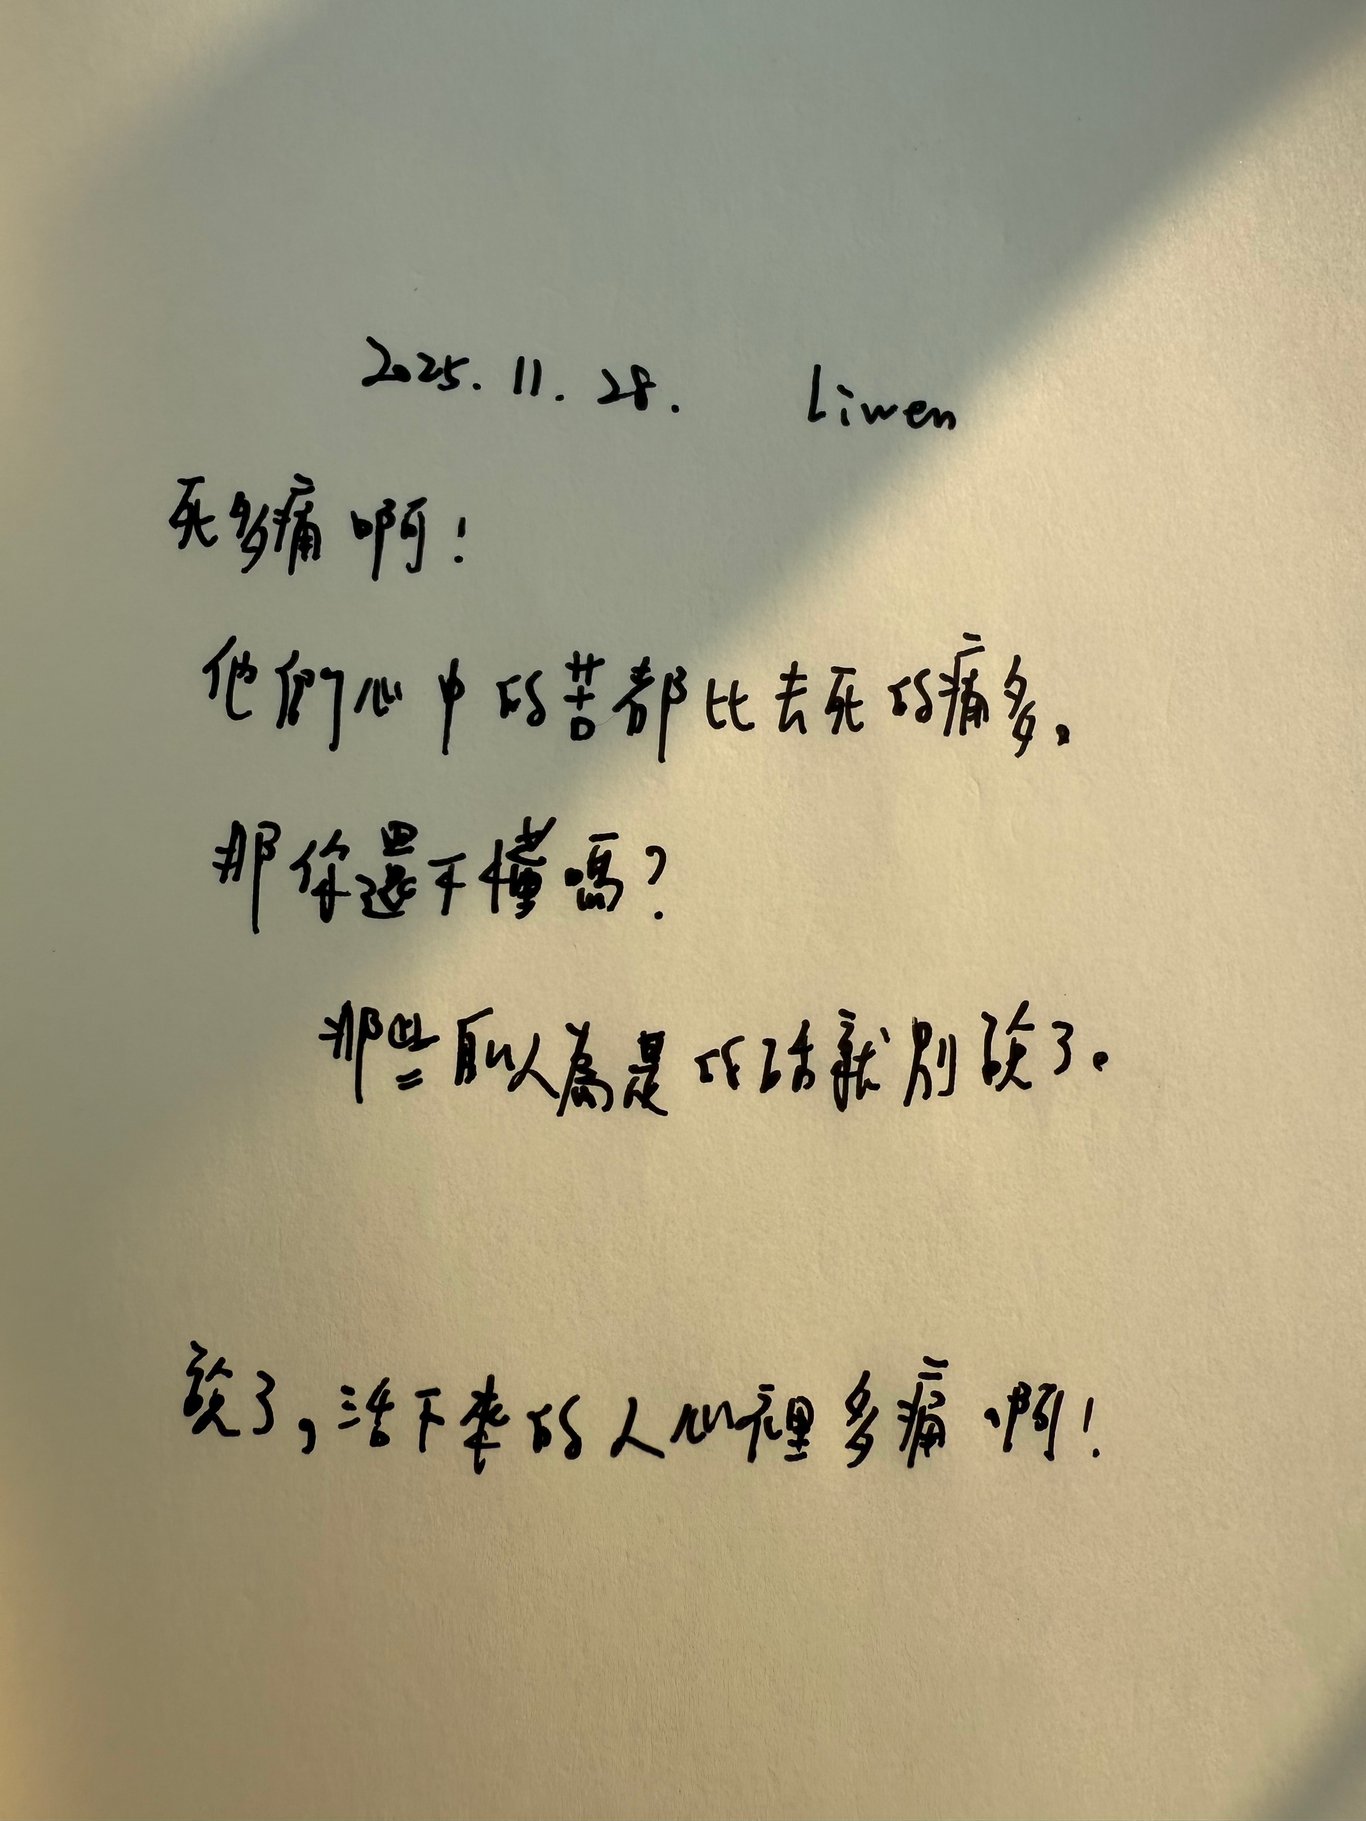 2025.11.28. Liwen
死多痛啊！
他們心中的苦都比去死的痛多。
那你還不懂嗎？
那些自以人為是的話就別說了。
說了，活下來的人心裡多痛啊！